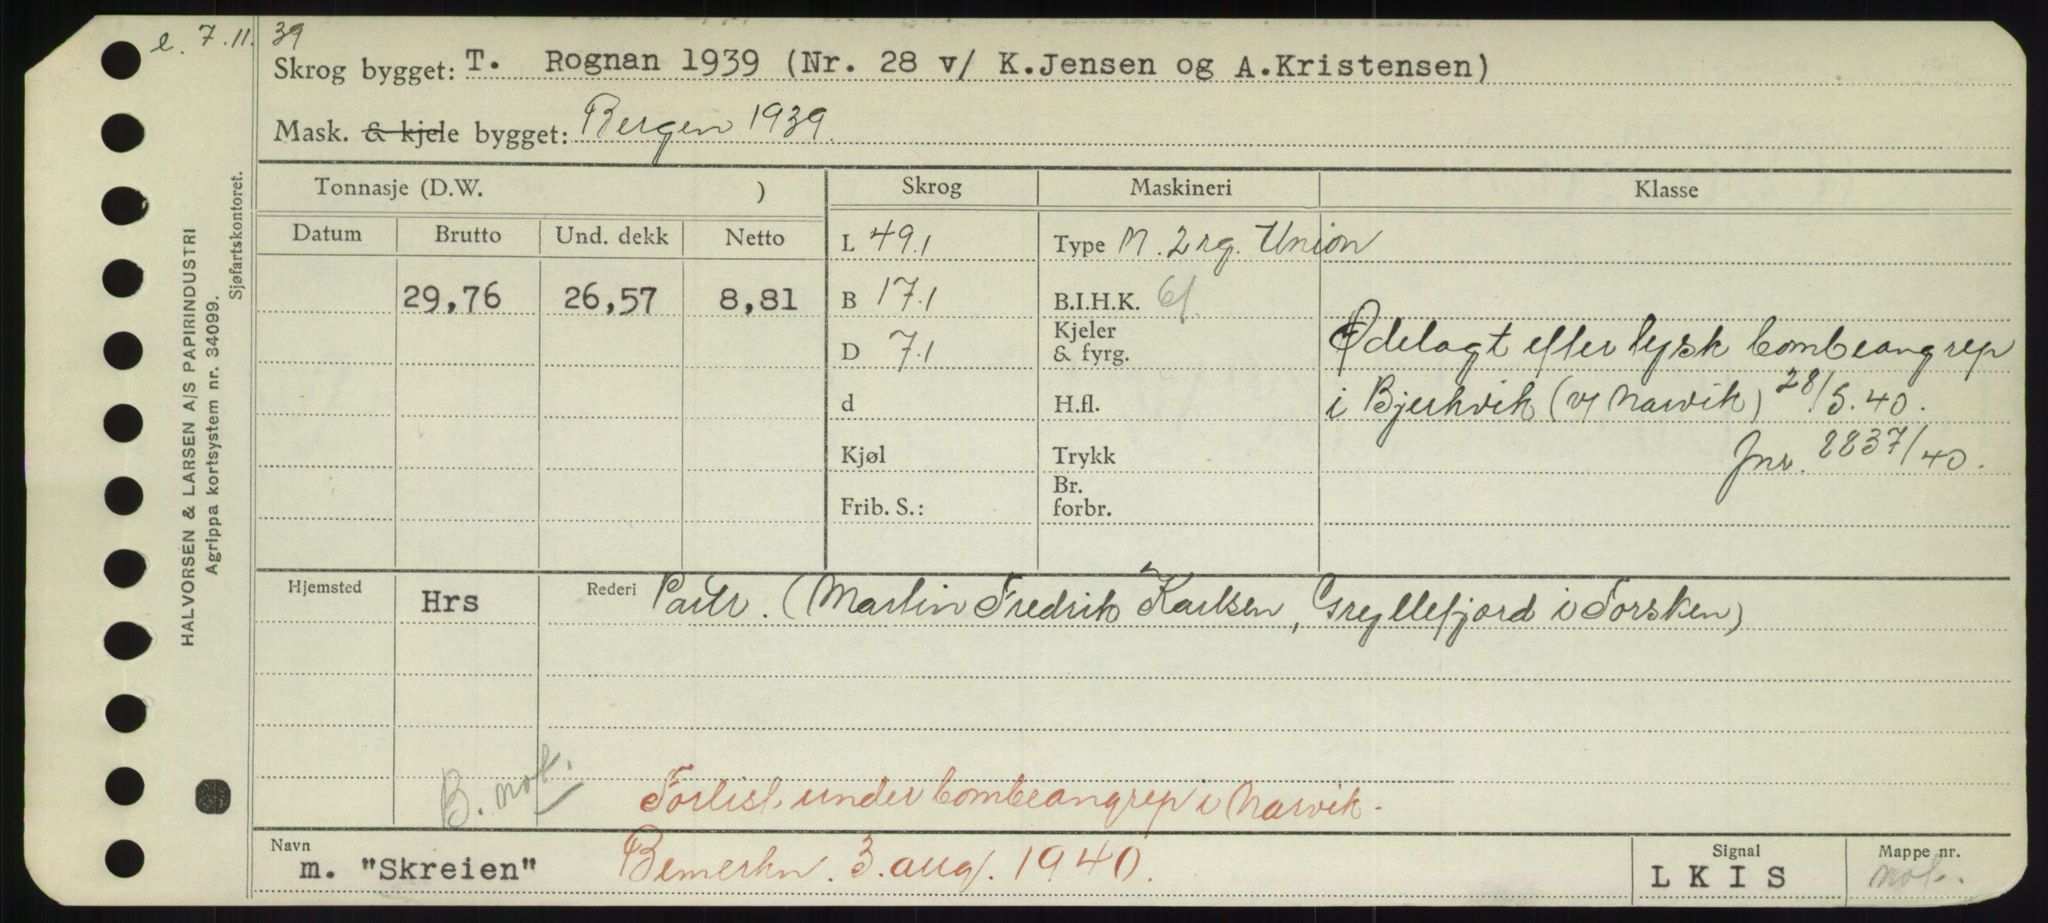 e. 7.11.39
Skrog bygget: T. Rognan 1939 (Nr. 28 v/ K.Jensen og A.Kristensen)
Mask. & kjele bygget: Bergen 1939.
Tonnasje (D.W. )
Skrog
Maskineri
Klasse
Datum
Brutto
Und. dekk
Netto
29,76
26,57
8,81
L 49.1
B 17.1
D 7.1
d
Kjøl
Frib. S.:
Type M. 2 rg. Union
B.I.H.K. 61
Kjeler
& fyrg.
H.fl.
Trykk
Br.
forbr.
Ødelagt efter tysk bombeangrep
i Bjerkvik (v/ Narvik) 28/5.40.
Jnr. 2837/40.
Hjemsted Hrs
Rederi Partr. (Martin Fredrik Karlsen, Gryllefjord i Torsken)
B. not.
Forlist under bombeangrep i Narvik.
Navn
m. "Skreien"
Bemerkn. 3. aug. 1940.
Signal
LKIS
Mappe nr.
not.
HALVORSEN & LARSEN A/S PAPIRINDUSTRI
Agrippa kortsystem nr. 34099.
Sjøfartskontoret.